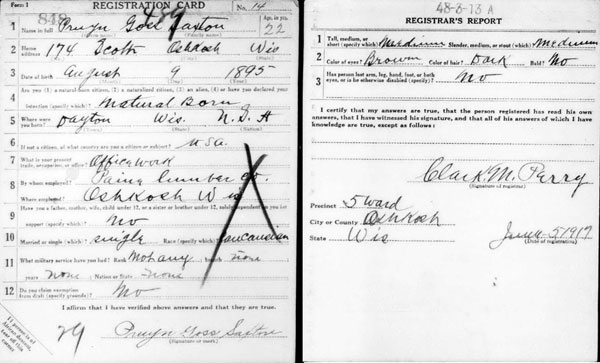 Form 1
REGISTRATION CARD
No. 14
1 Name in full Pruyn Goss Saxton
Age, in yrs. 22
2 Home address 174 Scott Oshkosh Wis
3 Date of birth August 9 1895
4 Are you (1) a natural-born citizen, (2) a naturalized citizen, (3) an alien, (4) or have you declared your intention (specify which)? Natural Born
5 Where were you born? Dayton Wis. U.S.A
6 If not a citizen, of what country are you a citizen or subject? USA
7 What is your present trade, occupation, or office? Office work
8 By whom employed? Paine Lumber Co.
Where employed? Oshkosh Wis
9 Have you a father, mother, wife, child under 12, or a sister or brother under 12, solely dependent on you for support (specify which)? No
10 Married or single (which)? Single Race (specify which)? Caucasian
11 What military service have you had? Rank branch none
years none Nation or State none
12 Do you claim exemption from draft (specify grounds)? No
I affirm that I have verified above answers and that they are true.
29
Pruyn Goss Saxton
(Signature or mark)
48-3-13 A
REGISTRAR'S REPORT
1 Tall, medium, or short (specify which)? Medium Slender, medium, or stout (which)? Medium
2 Color of eyes? Brown Color of hair? Dark Bald? No
3 Has person lost arm, leg, hand, foot, or both eyes, or is he otherwise disabled (specify)? No
I certify that my answers are true, that the person registered has read his own answers, that I have witnessed his signature, and that all of his answers of which I have knowledge are true, except as follows:
Clark M. Perry
(Signature of registrar)
Precinct 5 Ward
City or County Oshkosh
State Wis
June 5 1917
(Date of registration)